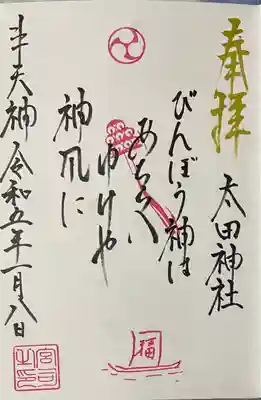 奉拝
太田神社
びんぼう神は
あちらへ
ゆけや
神風に
半天神
令和五年一月八日
福